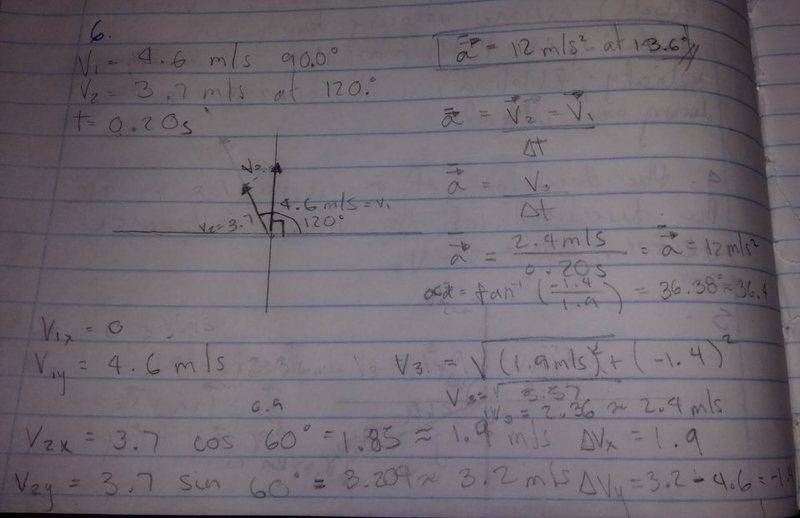 6.
V₁ = 4.6 m/s 90.0°
V₂ = 3.7 m/s at 120.°
t = 0.20s
a⃗ = 12 m/s² at 143.6°
a⃗ = V⃗₂ - V⃗₁ / Δt
a⃗ = V₃ / Δt
a⃗ = 2.4 m/s / 0.20s = a⃗ = 12 m/s²
= tan⁻¹ (-1.4 / 1.9) = 36.38° ≈ 36.4
V₂
4.6 m/s = V₁
V₂ = 3.7
120°
V₁x = 0
V₁y = 4.6 m/s
V₃ = √(1.9 m/s)² + (-1.4)²
V₃ = √5.57
V₃ = 2.36 ≈ 2.4 m/s
V₂x = 3.7 cos 60° = 1.85 ≈ 1.9 m/s ΔVx = 1.9
V₂y = 3.7 sin 60° = 3.204 ≈ 3.2 m/s ΔVy = 3.2 - 4.6 = -1.4